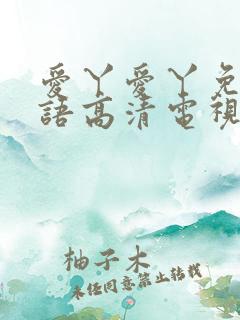 愛丫愛丫免
語高清電視
柚子木
未任同意禁止转载